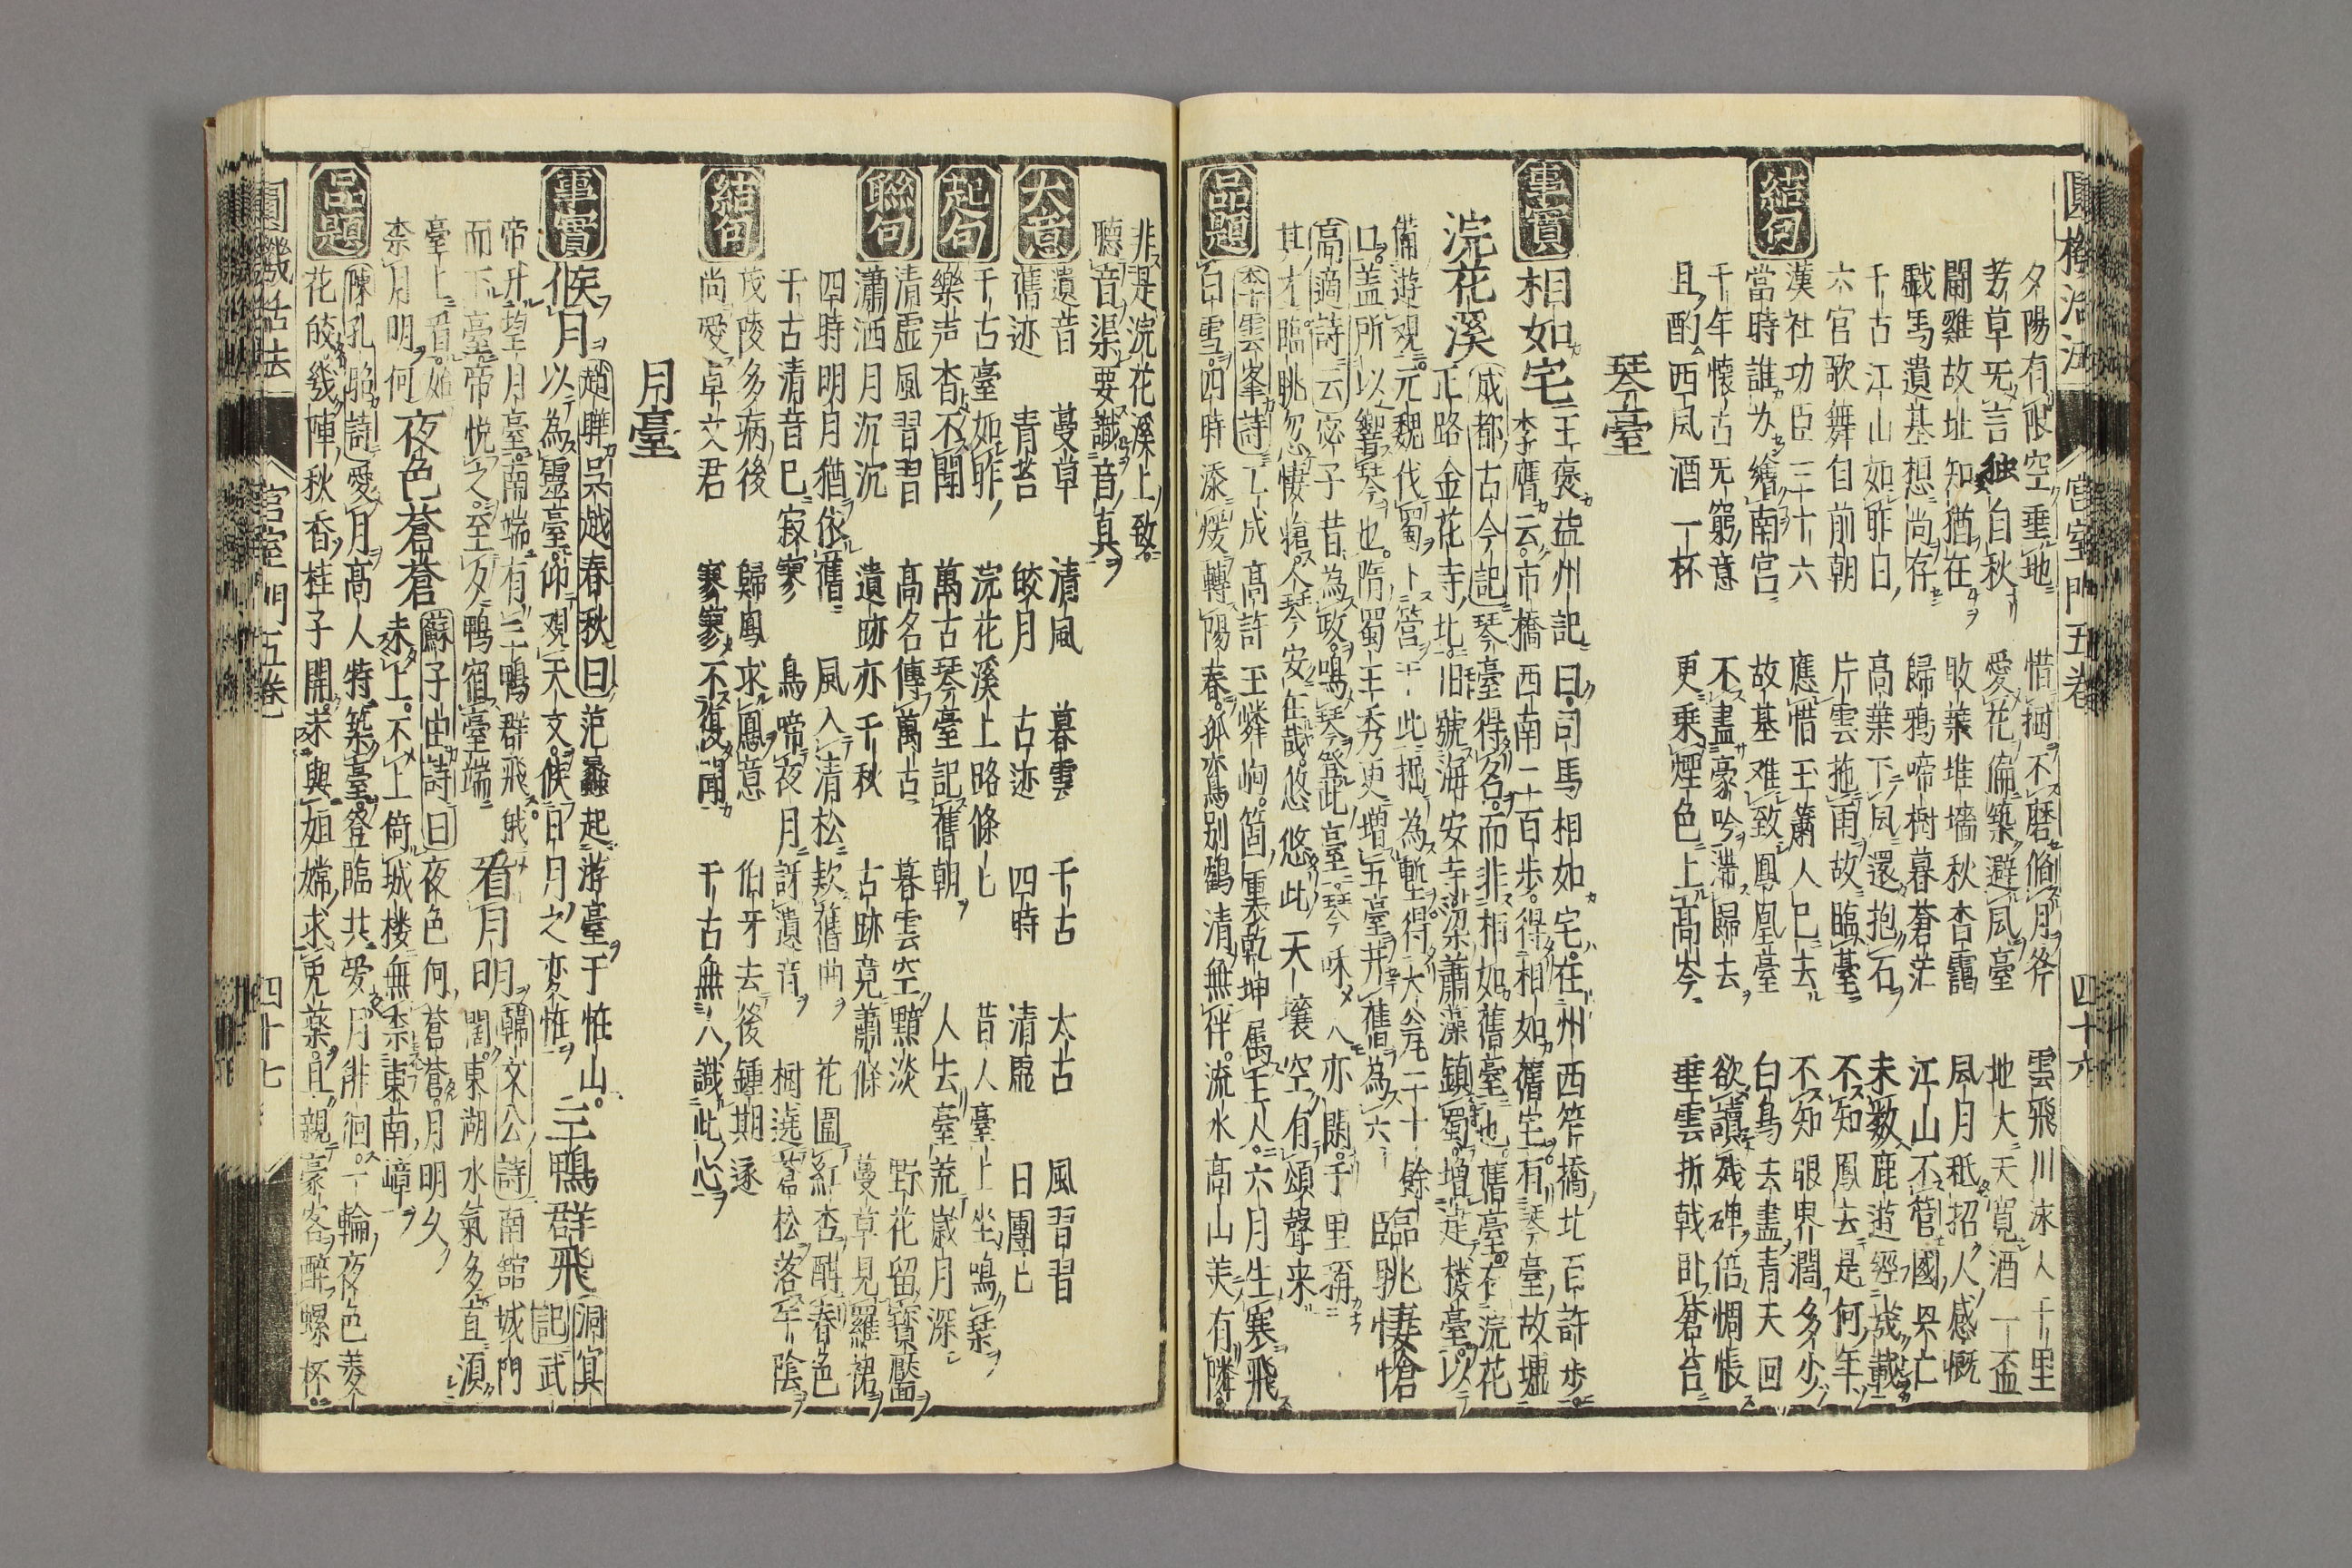 圓機活法 宮室門五卷 四十六
夕陽有限空垂地 惜摑不磨脩月斧 雲飛川泳人千里
芳草旡言独自秋 愛花偏築避風臺 地大天寛酒一盃
鬪雞故址知猶在 敗葉堆墻秋杳靄 風月秪招人感慨
戯馬遺基想尚存 歸鴉啼樹暮蒼茫 江山不管國興亡
千古江山如昨日 高葉下風還抱石 未數鹿遊經幾載
六宮歌舞自前朝 片雲拖雨故臨臺 不知鳳去是何年
漢社功臣三十六 應惜玉簫人已去 不知眼界濶多少
結句
當時誰为繪南宮 故基难致鳳凰臺 白鳥去盡青天回
千年懷古旡窮意 不盡豪吟滯歸去 欲讀残碑倍惆悵
且酌西風酒一杯 更乗煙色上高岑 垂雲折戟卧蒼苔
琴臺
事實
相如宅 王褒益州記曰司馬相如宅在州西笮橋北百許步
李膺云市橋西南二百步得相如舊宅有琴臺故墟
浣花溪 成都古今記琴臺得名而非相如舊臺也舊臺在浣花
正路金花寺北旧號海安寺梁蕭藻鎮蜀增建楼臺以
備遊观元魏伐蜀下營于此掘為塹得大瓮二十餘 臨眺悽愴
口蓋所以響琴也隋蜀王秀更增五臺并舊為六
高適詩云宓子昔為政鳴琴登此臺琴咊人亦閑千里稱
其才臨眺忽悽愴人琴安在哉悠悠此天壤空有頌聲来
李雲峯詩一成高許玉嶙峋箇裏乾坤属主人六月生寒飛
品題
白雪四時添煖轉陽春孤鸞别鶴清無伴流水高山美有隣
非是浣花溪上致
聽音渠要識音真
大意
遺音 蔓草 清風 暮雲 千古 太古 風習習
舊迹 青苔 皎月 古迹 四時 清虚 日團匕
起句
千古臺如昨 浣花溪上路條匕 昔人臺上坐鳴琴
樂声杳不聞 萬古琴臺記舊朝 人去臺荒歳月深
聯句
清虚風習習 高名傳萬古 暮雲空黯淡 野花留寳靨
瀟洒月沉沉 遺跡亦千秋 古跡竟蕭條 蔓草見羅裙
四時明月猶依舊 風入清松欵舊曲 花圍紅杏酣春色
千古清音已寂寥 鳥啼夜月訝遺音 樹遶蒼松落翠陰
結句
茂陵多病後 歸鳳求凰意 伯牙去後鍾期逐
尚愛卓文君 寥寥不復聞 千古無人識此心
月臺
事實
候月 趙曄呉越春秋曰范蠡起游臺于恠山 三鴨群飛 洞冥
以為靈臺仰观天文候日月之変恠 記武
帝升望月臺南端有三鴨群飛俄 看月明 韓文公詩南館城門
而下臺帝悦之至夕鴨宿臺端 闊東湖水氣多直湏
臺上看始 夜色蒼蒼 蘇子由詩曰夜色何蒼蒼月明久
柰月明何 未上不上倚城楼無柰東南嶂
陳孔昭詩愛月高人特築臺登臨共愛月徘徊一輪夜色菱
品題
花皎幾陣秋香桂子開求與姮嫦求兎薬且親豪客酔螺杯
圓機活法 宮室門五卷 四十七